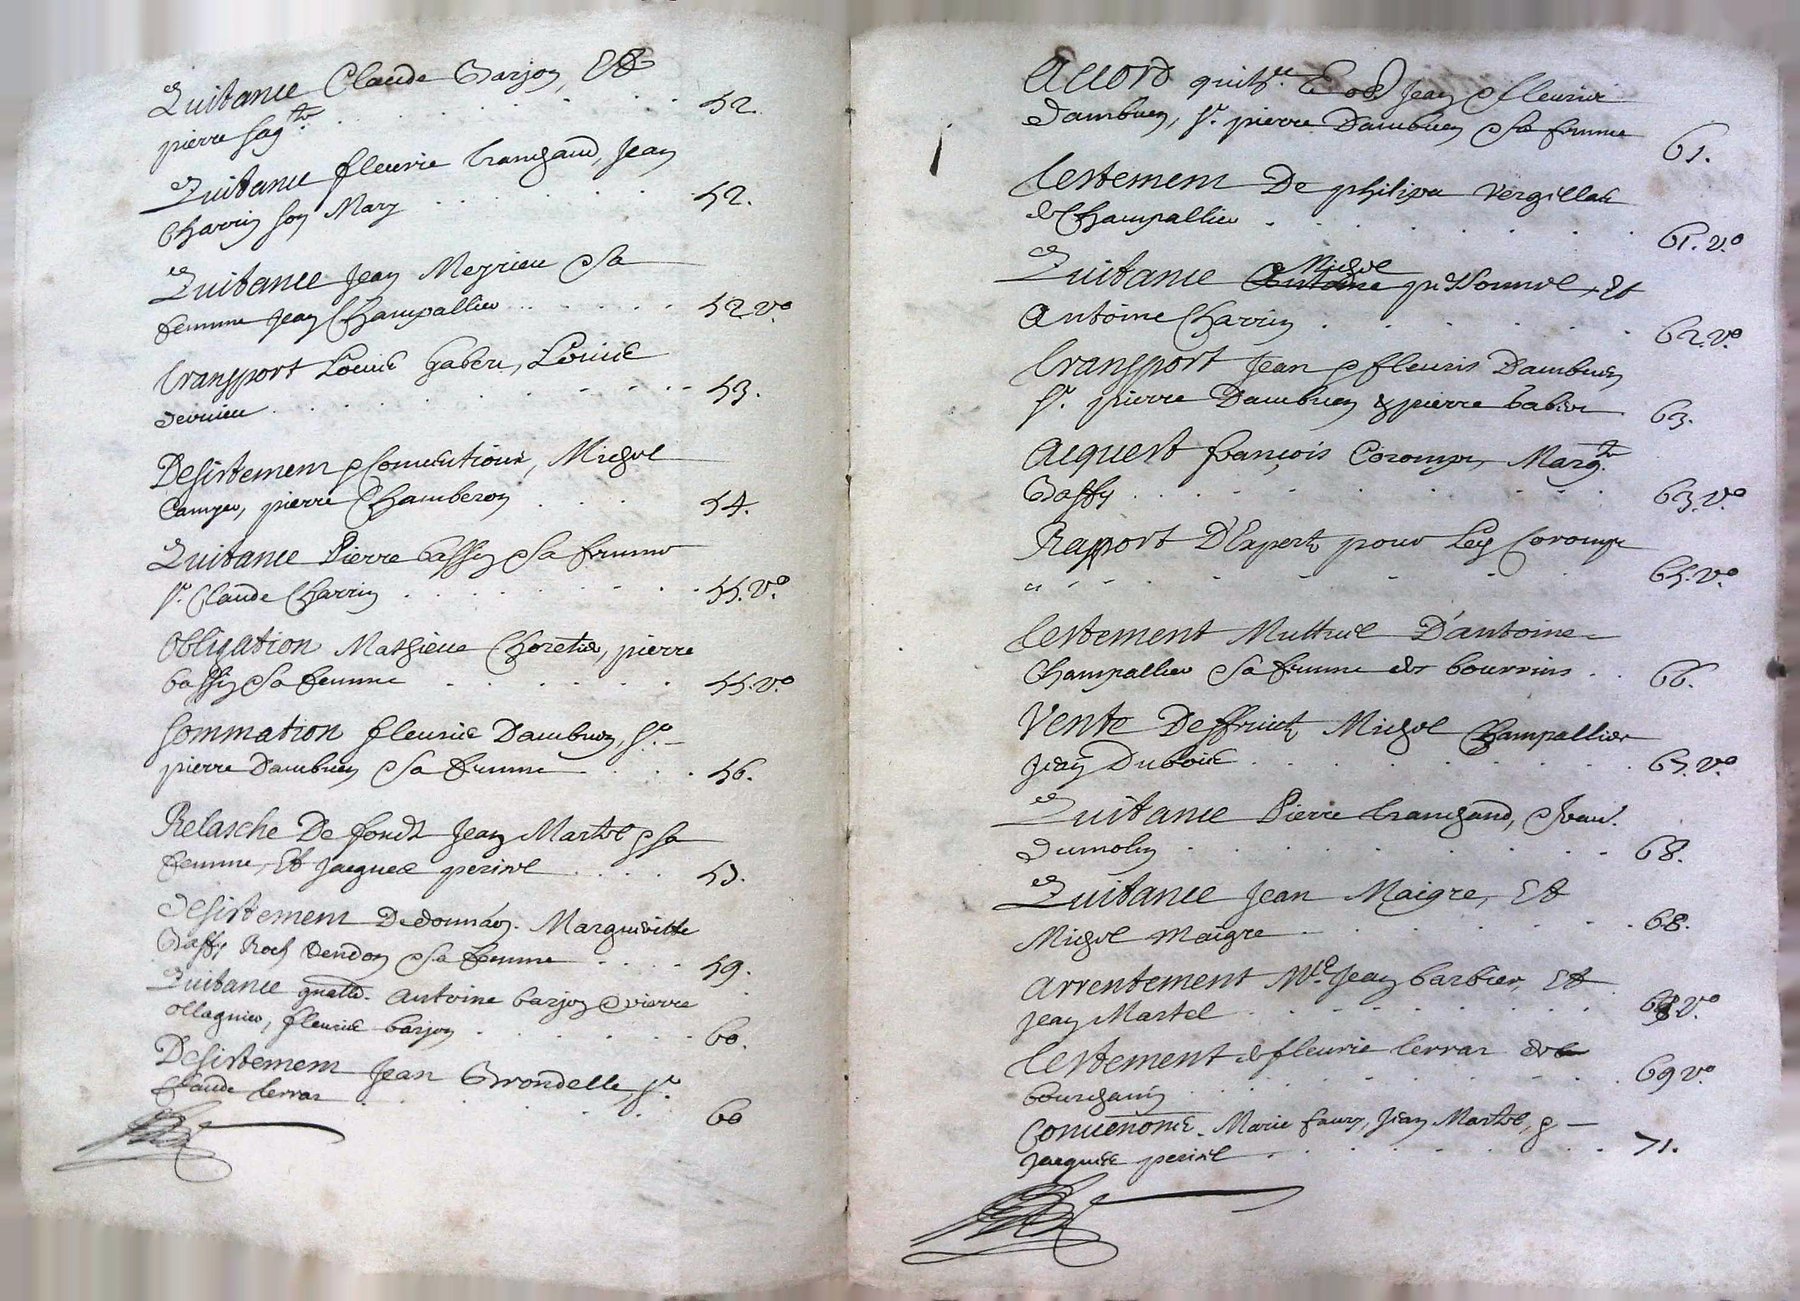 Quitance Claude Barjon, Et
pierre . . . . 52.
Quitance fleurie trangand, Jean
Charrin son Mary . . . . 52.
Quitance Jean Meyrieu & sa
femme Jean Champallier . . . . 52. v.o
transport Louise gabert, Louise
. . . . 53.
Desistement & Conventions, Michel
Camper, pierre Chamberon . . . 54.
Quitance Pierre bassin & sa femme
Sr. Claude Charrin . . . . 55. v.o
Obligation Mathieu Choretier, pierre
bassin & sa femme . . . . 55. v.o
Sommation fleurie Dambuen, Sr.
pierre Dambuen & sa femme . . . . 56.
Relasche De fondz Jean Martel & sa
femme, Et Jacques perinel . . . . 57.
Desistement De donnaon. Margueritte
Baffy Roch Dendon & sa femme . . . . 59.
Quitance gnalle. Antoine barjon & pierre
ollagnier, fleurie barjon . . . . 60.
Desistement Jean Brondelle, Sr.
Claude terrar . . . . 60
Accord quitce. Jean & fleurie
Dambuen, Sr. pierre Dambuen & sa femme 61.
testement De philipa vergillas
de Champallier . . . . 61. v.o
Quitance Antoine Michel Et
Antoine Charrin . . . . 62. v.o
transport Jean & fleuris Dambuen
Sr. pierre Dambuen & pierre babier . 63.
Acquest françois Corompt, Margte
Baffy . . . . 63. v.o
Rapport D'Expertz pour Corompt
" . . . . 65. v.o
testement Muttuel D'antoine
Champallier & sa femme des bourrins . . 66.
Vente De ffruictz Michel Champallier
Jean Dubois . . . . 67. v.o
Quitance Pierre trangand, &
Dumolin . . . . 68.
Quitance Jean Maigre, Et
Michel Maigre . . . . 68.
Arrentement Me. Jean barbier, Et
Jean Martel . . . . 68 v.o
testement de fleurie terrar de
bourchanin . . . . 69 v.o
Convenõns. Marie faury, Jean Martel, &
Jacques perinel . . . . 71.